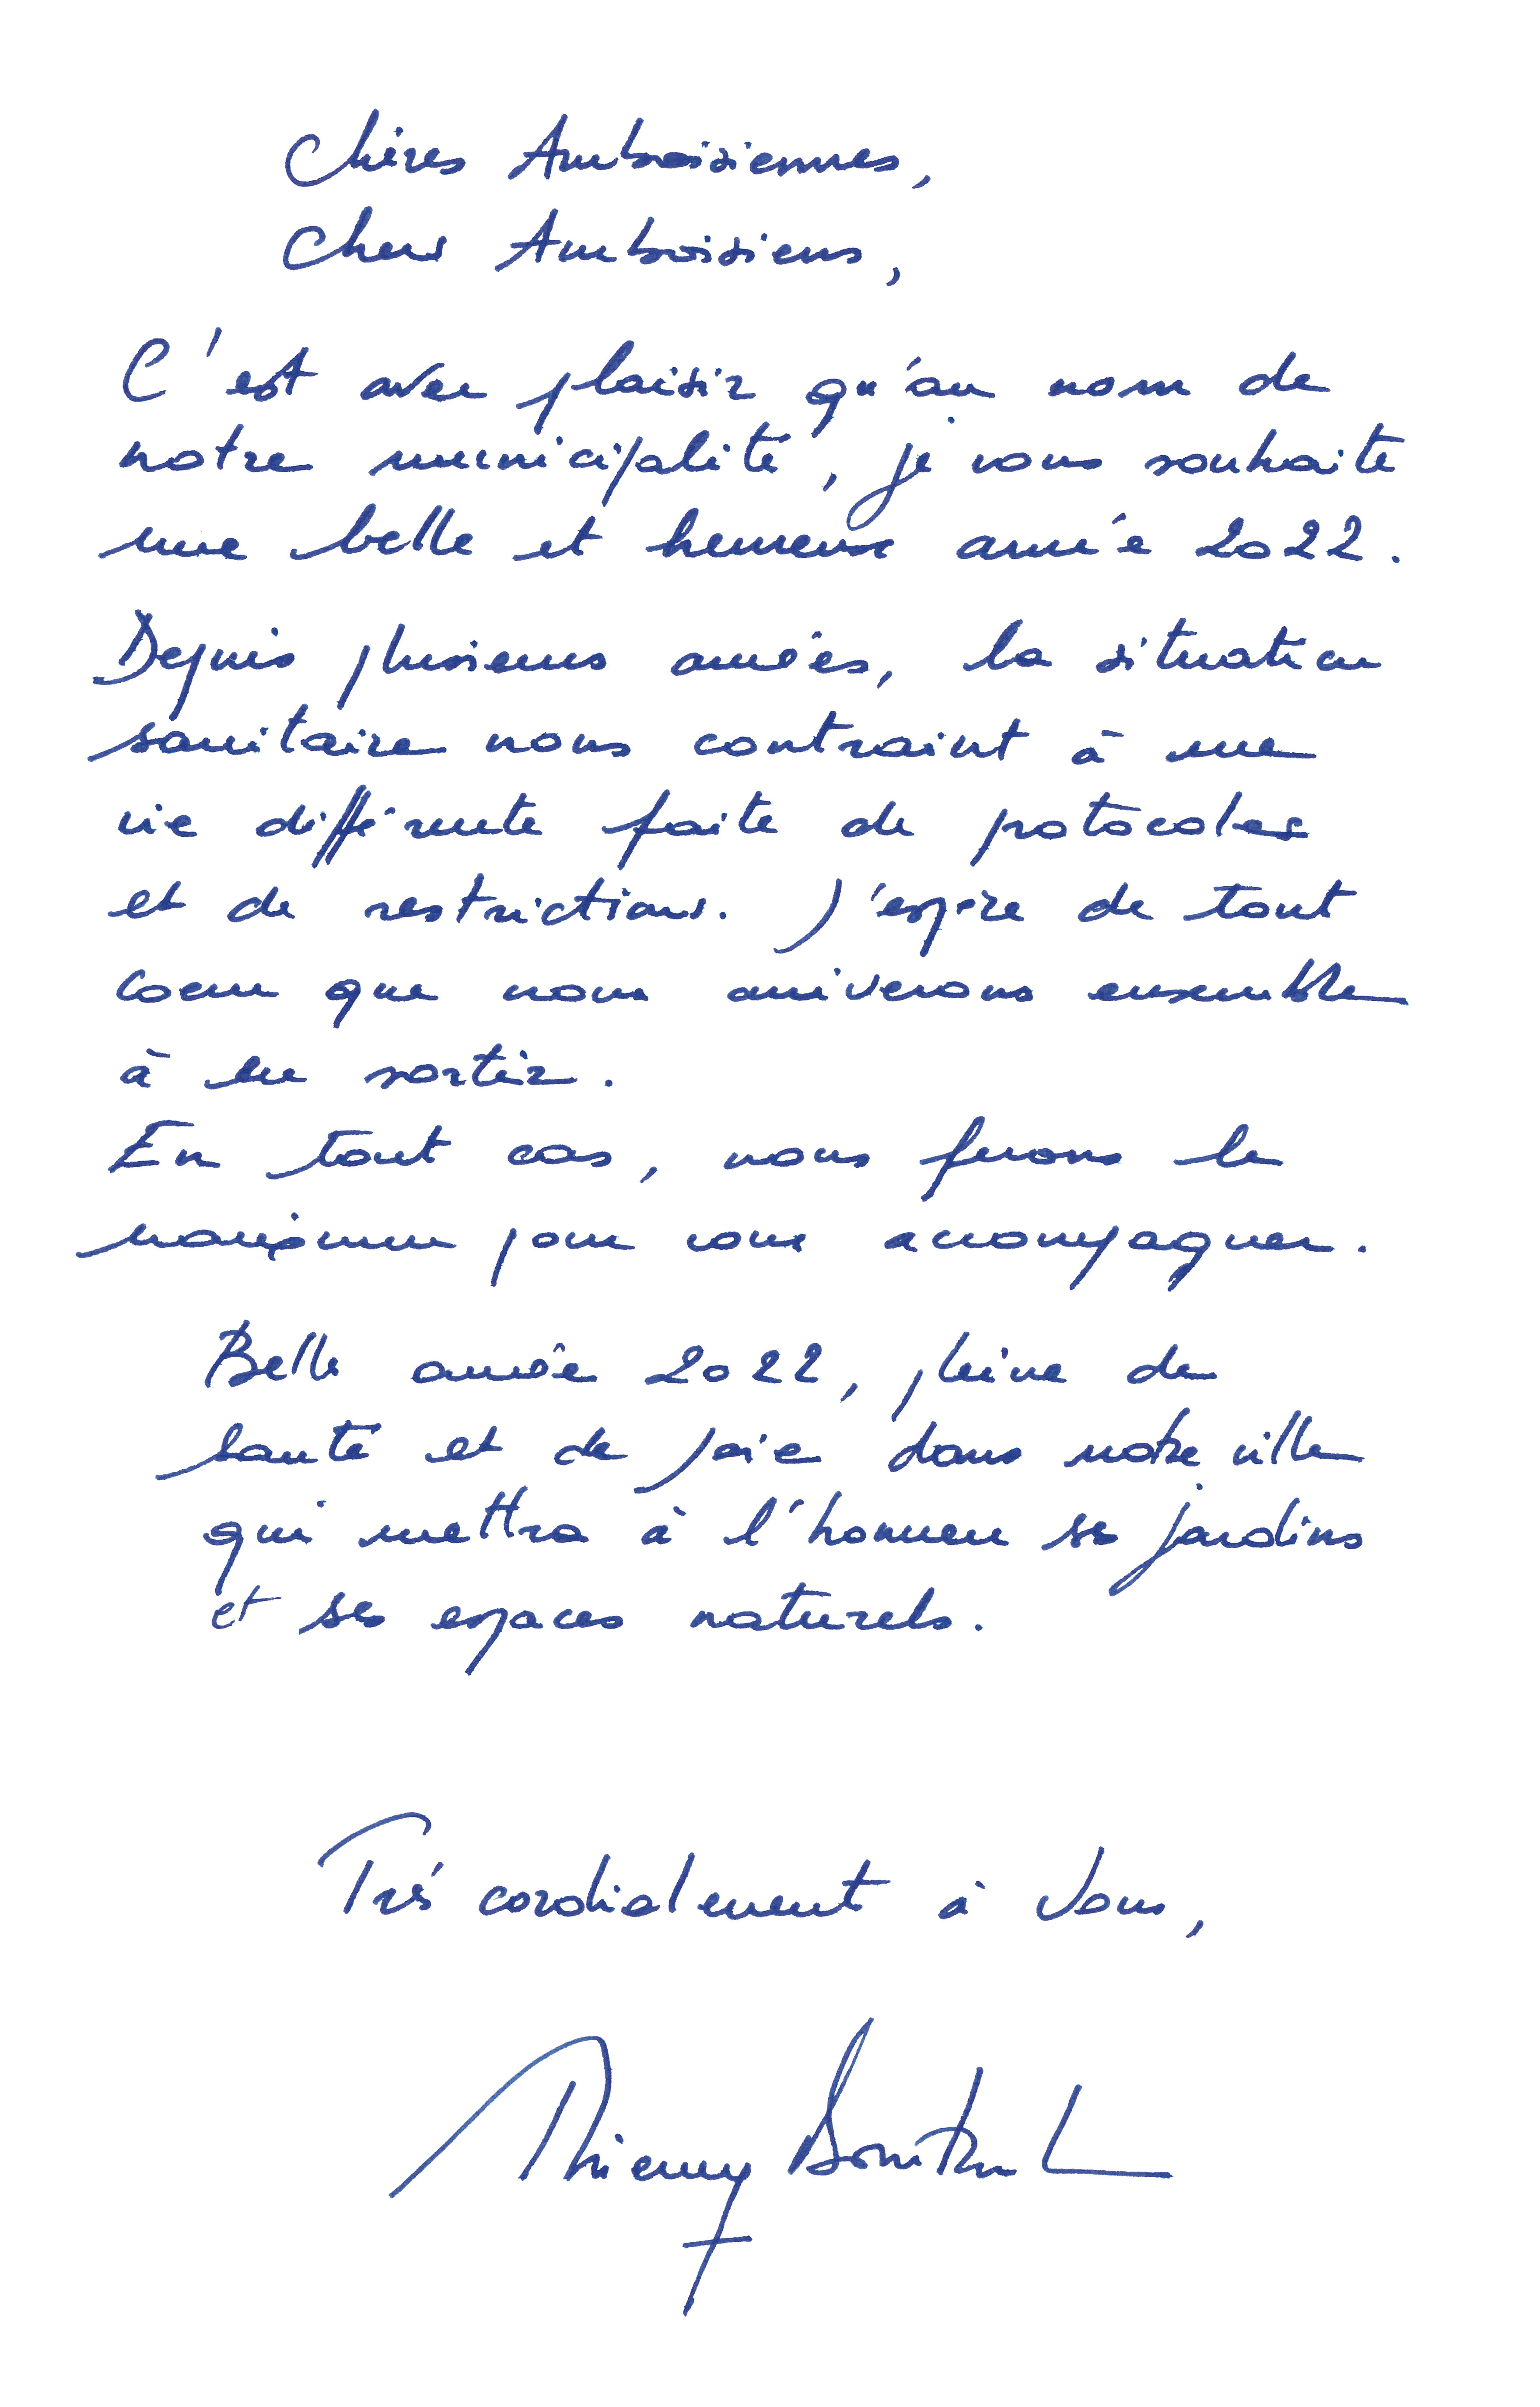 Chères Amboisiennes,
Chers Amboisiens,
C'est avec plaisir qu'au nom de
notre municipalité, je vous souhaite
une belle et heureuse année 2022.
Depuis plusieurs années, la situation
sanitaire nous contraint à une
vie différente faite de protocoles
et de restrictions. J'espère de tout
coeur que nous arriverons ensemble
à en sortir.
En tout cas, nous ferons le
maximum pour vous accompagner.
Belle année 2022, pleine de
santé et de joie dans notre ville
qui mettra à l'honneur ses jardins
et ses espaces naturels.
Très cordialement à vous,
Thierry Boutard